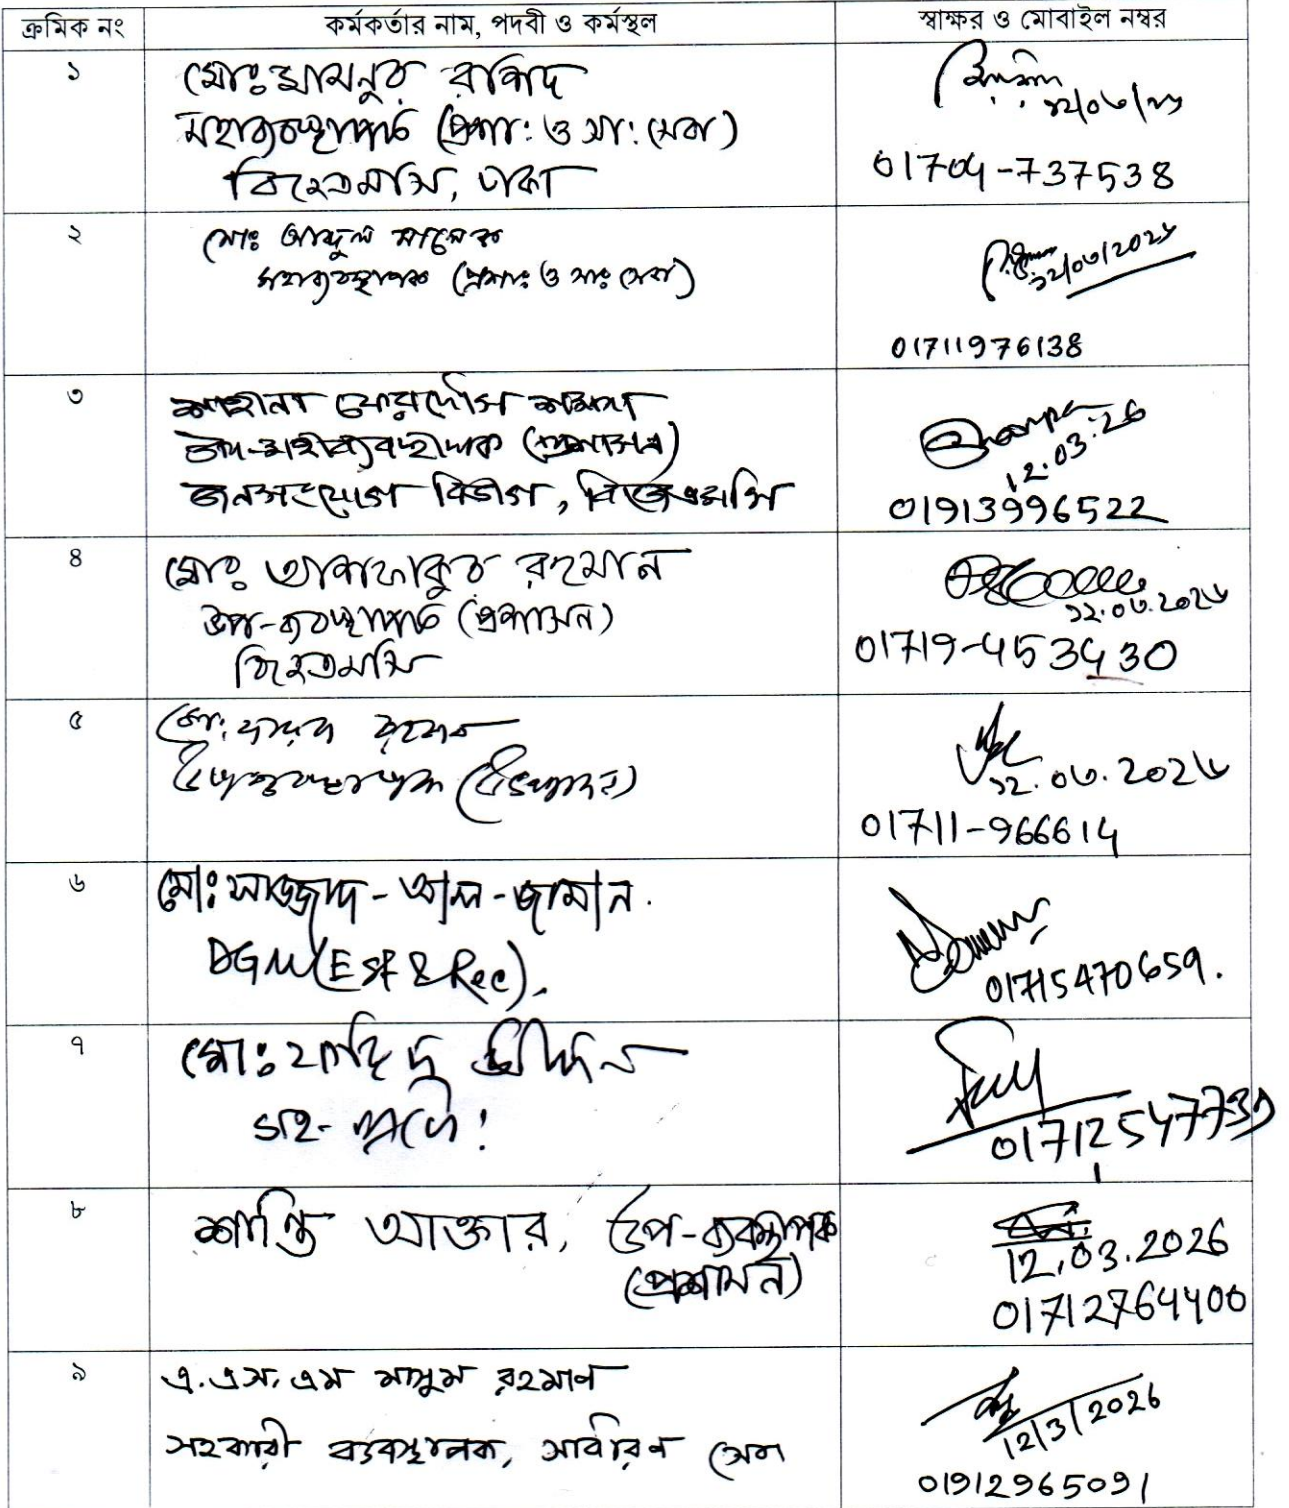 ক্রমিক নং কর্মকর্তার নাম, পদবী ও কর্মস্থল স্বাক্ষর ও মোবাইল নম্বর
১ মোঃ মামনুর রশিদ
মহাব্যবস্থাপক (প্রশা: ও সা: সেবা)
বিজেএমসি, ঢাকা
১২/০৩/২৬
01704-737538
২ মোঃ আব্দুল মালেক
মহাব্যবস্থাপক (প্রশাঃ ও সাঃ সেবা)
১২/০৩/২০২৬
01711976138
৩ শাহীনা ফেরদৌস
উপ-মহাব্যবস্থাপক (প্রশাসন)
জনসংযোগ বিভাগ, বিজেএমসি
12.03.26
01913996522
৪ মোঃ রহমান
উপ-ব্যবস্থাপক (প্রশাসন)
বিজেএমসি
১২.০৩.২০২৬
01719-453430
৫ মো: রহমান
১২.০৩.২০২৬
01711-966614
৬ মোঃ সাজ্জাদ-আল-জামান.
DGM (Est & Rec).
01715470659.
৭ মোঃ উদ্দিন
সহ-
01712547739
৮ শান্তি আক্তার, উপ-ব্যবস্থাপক
(প্রশাসন)
12.03.2026
01712764400
৯ এ.এস.এম মাসুম রহমান
সহকারী ব্যবস্থাপক, সাধারণ সেবা
12/3/2026
01912965091